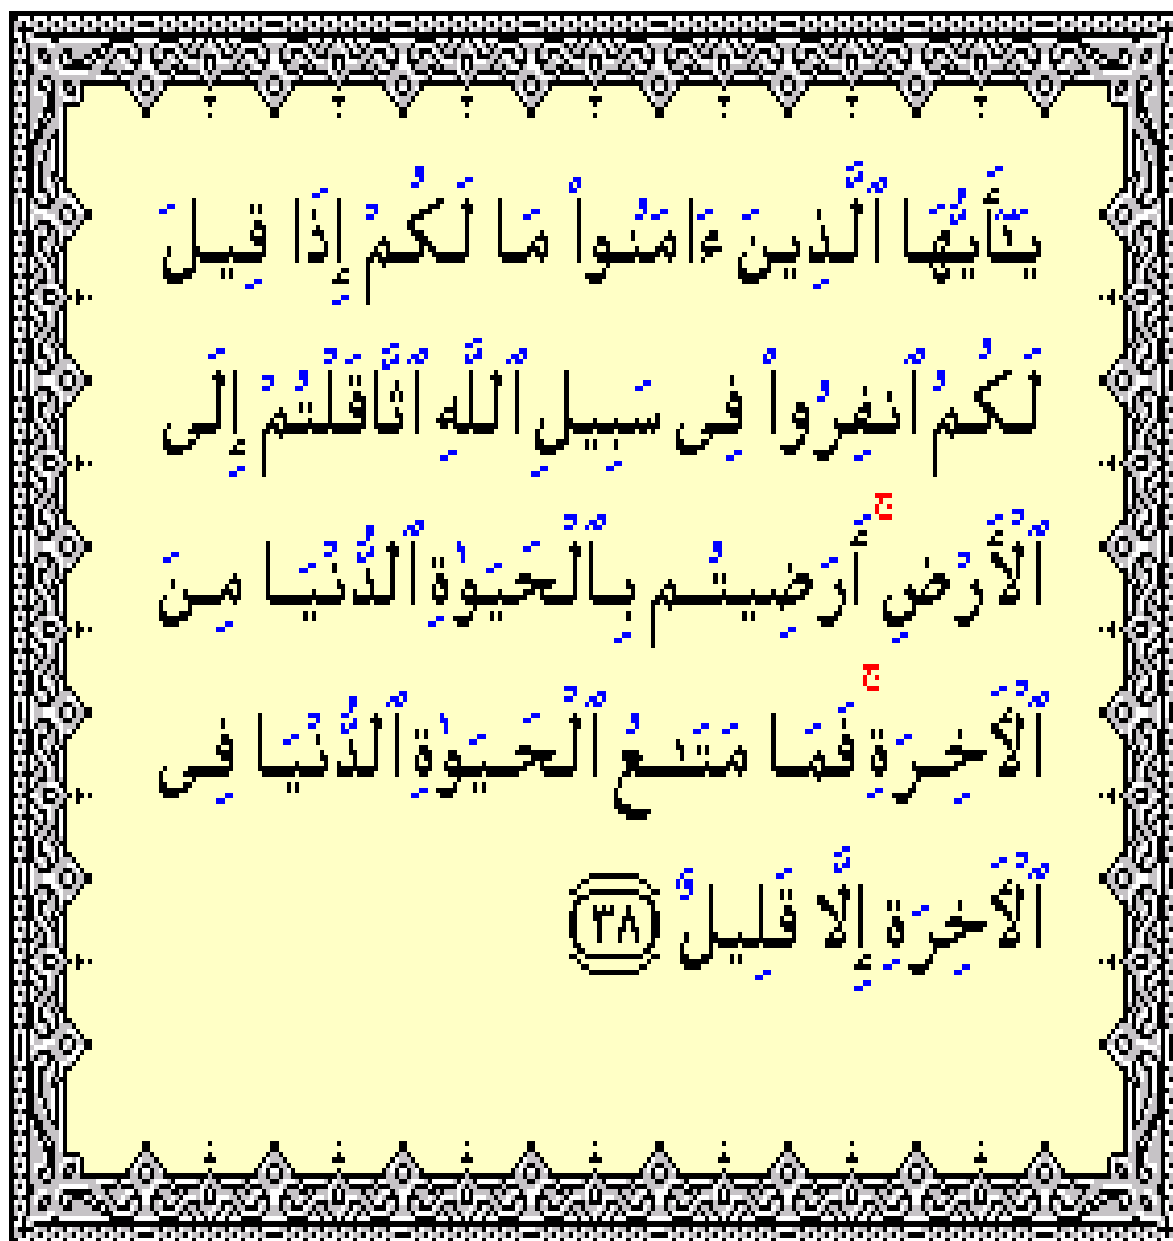 يَـٰٓأَيُّهَا ٱلَّذِينَ ءَامَنُوا۟ مَا لَكُمْ إِذَا قِيلَ
لَكُمُ ٱنفِرُوا۟ فِى سَبِيلِ ٱللَّهِ ٱثَّاقَلْتُمْ إِلَى
ٱلْأَرْضِ ۚ أَرَضِيتُم بِٱلْحَيَوٰةِ ٱلدُّنْيَا مِنَ
ٱلْأَخِرَةِ ۚ فَمَا مَتَـٰعُ ٱلْحَيَوٰةِ ٱلدُّنْيَا فِى
ٱلْأَخِرَةِ إِلَّا قَلِيلٌ ﴿٣٨﴾